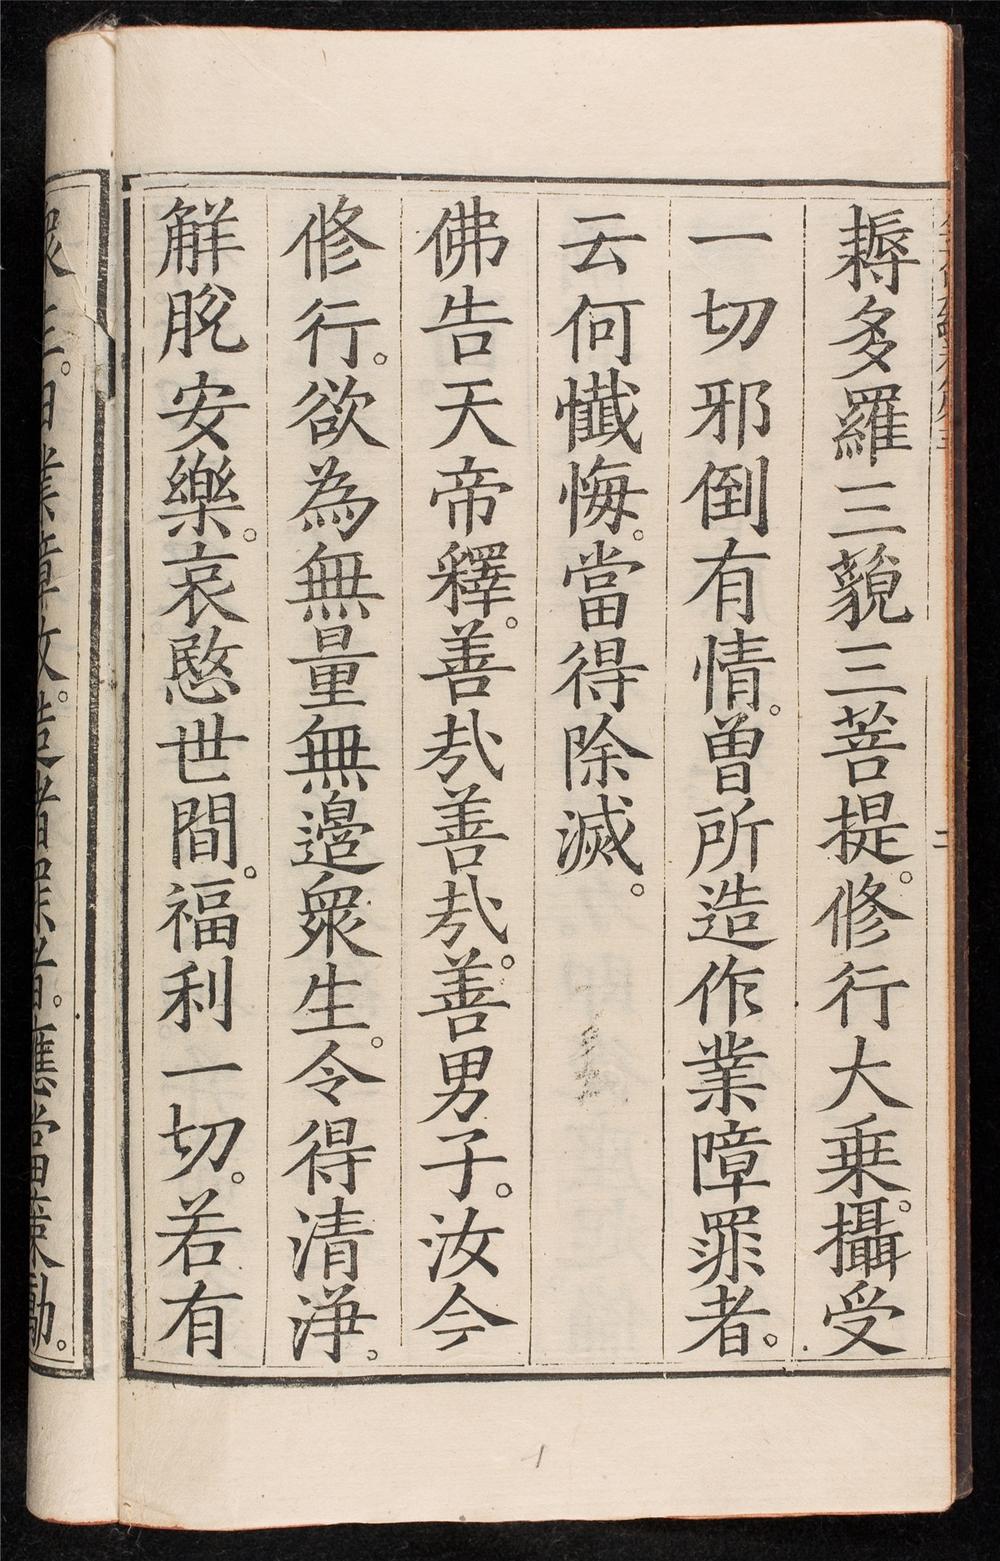 耨多羅三藐三菩提。修行大乗。攝受
一切邪倒有情。曽所造作業障罪者。
云何懺悔。當得除滅。
佛告天帝釋。善㢤善㢤。善男子。汝今
修行。欲為無量無邉衆生。令得清淨。
解脫安樂。哀愍世間。福利一切。若有
由業障故。造諸罪者。應當策勵。